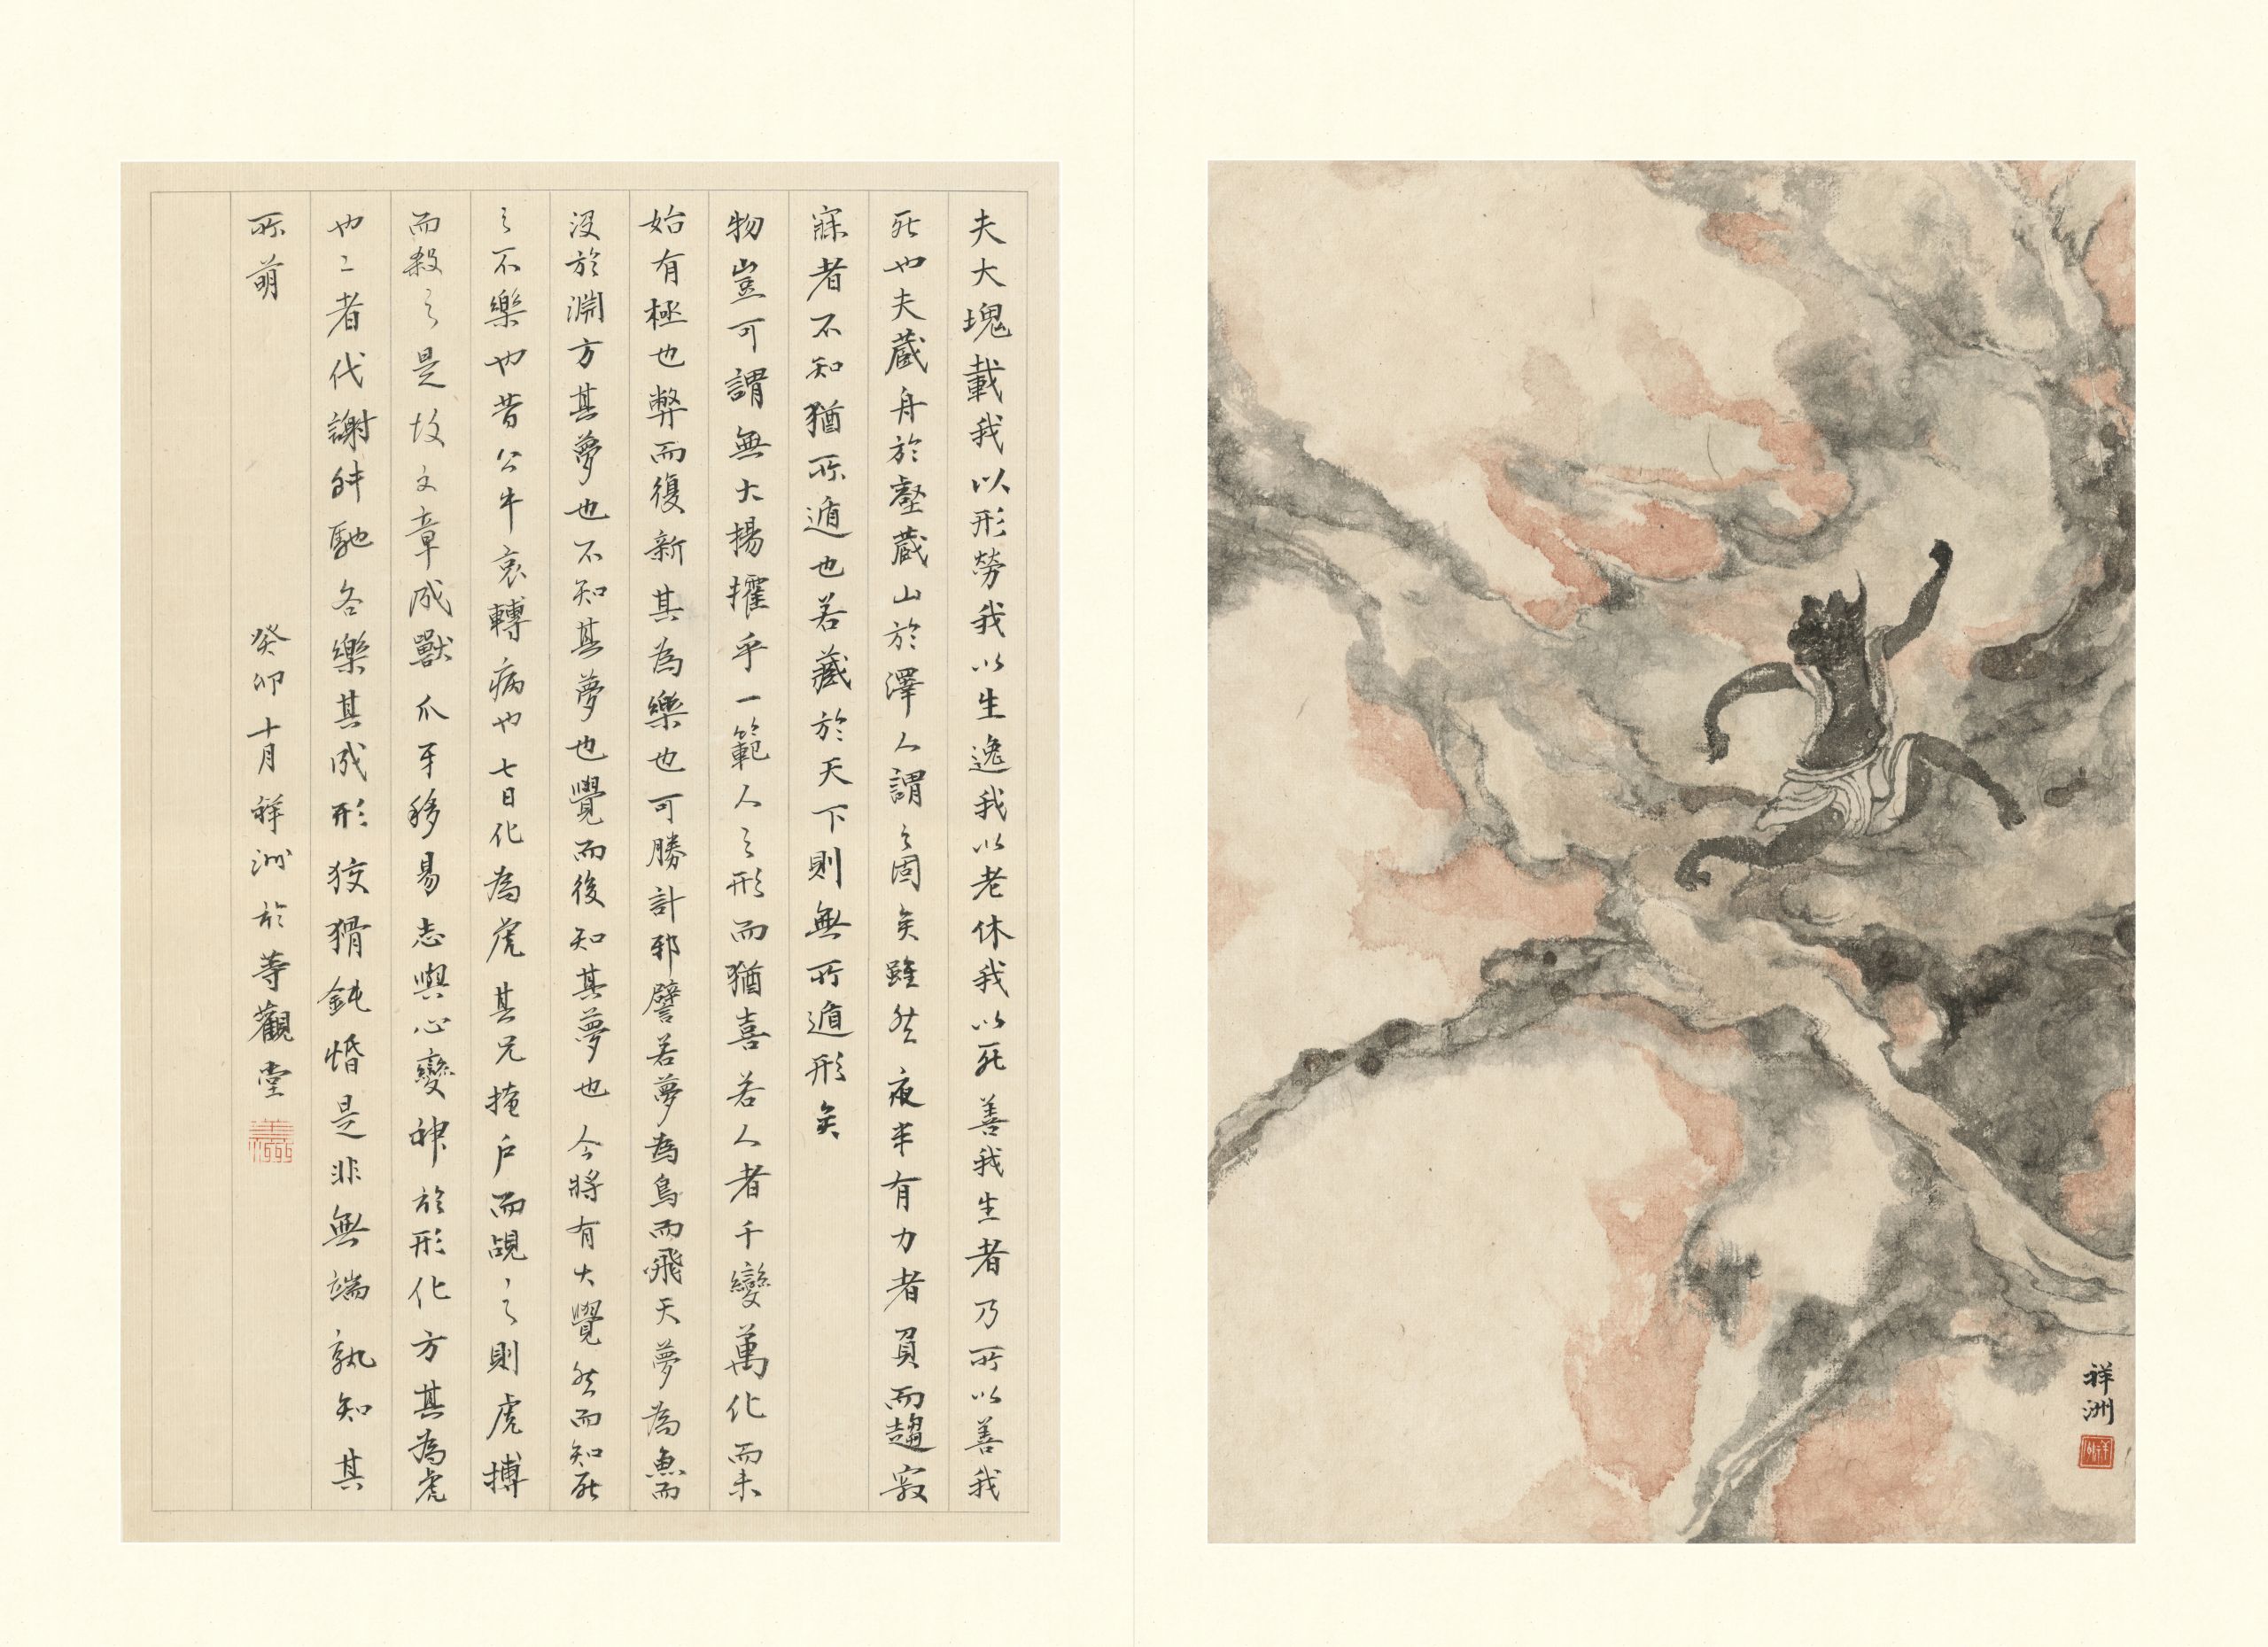 夫大塊載我以形勞我以生逸我以老休我以死善我生者乃所以善我
死也夫蔵舟於壑蔵山於澤人謂之固矣雖然夜半有力者負而趨寂
寐者不知猶所遁也若藏於天下則無所遁形矣
物豈可謂無大揚攉乎一範人之形而猶喜若人者千變萬化而未
始有極也弊而復新其為樂也可勝計邪譬若夢為鳥而飛天夢為魚而
没於淵方其夢也不知其夢也覺而後知其夢也今將有大覺然而知死
之不樂也昔公牛哀轉病也七日化為虎其兄掩戶而覘〻之則虎搏
而殺之是故文章成獸爪牙移易志與心變神於形化方其為虎
也〻者代謝舛馳各樂其成形狡猾鈍惛是非無端孰知其
所萌
癸卯十月祥洲於等觀堂
祥洲